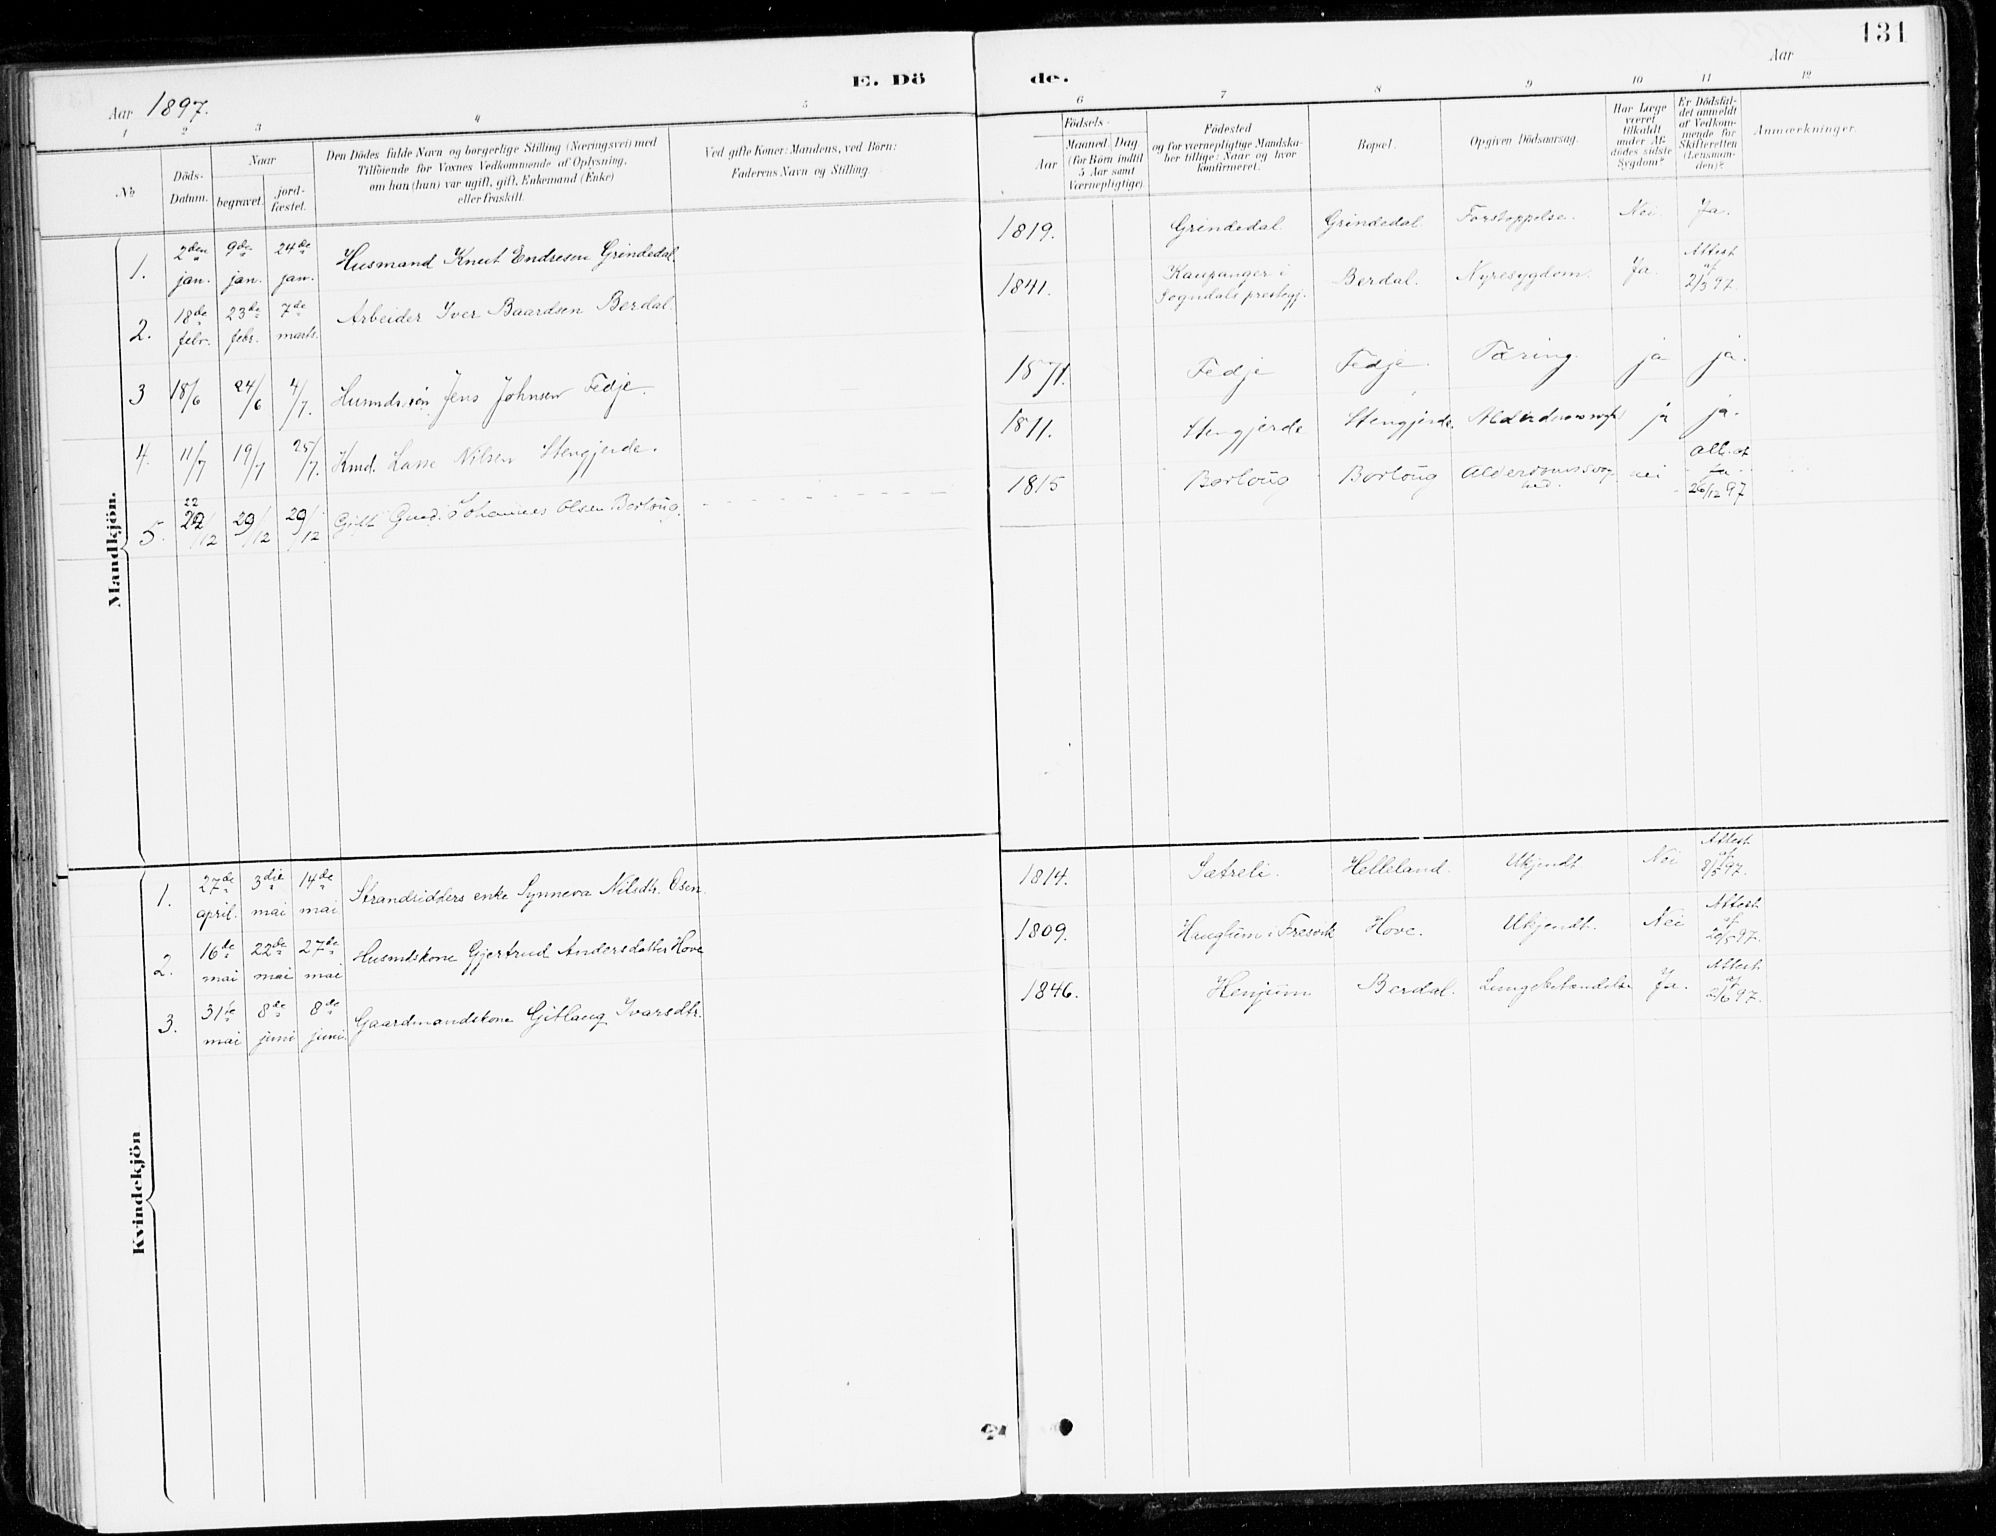 131
E. Dö de.
Aar 1897.
Aar
1 2 3 4 5 6 7 8 9 10 11 12
No
Döds-Datum.
Naar
begravet.
jord-fæstet.
Den Dödes fulde Navn og borgerlige Stilling (Næringsvei) med
Tilföiende for Voxnes Vedkommende af Oplysning,
om han (hun) var ugift, gift, Enkemand (Enke)
eller fraskilt.
Ved gifte Koner: Mandens, ved Börn:
Faderens Navn og Stilling.
Födsels-
Aar
Maaned. Dag
(for Börn indtil
5 Aar samt
Værnepligtige).
Födested
og for værnepligtige Mandska-
ber tillige: Naar og hvor
konfirmeret.
Bopæl.
Opgiven Dödsaarsag.
Har Læge
været
tilkaldt
under Af-
dödes sidste
Sygdom?
Er Dödsfal-
det anmeldt
af Vedkom-
mende for
Skifteretten
(Lensman-
den)?
Anmærkninger.
Mandkjön.
1. 2den jan. 9de jan. 24de jan. Husmand Knut Endresen Grindedal 1819. Grindedal Grindedal Forstoppelse. Nei. Ja.
2. 18de febr. 23de febr. 7de marts. Arbeider Iver Baardsen Berdal. 1841. Kaupanger i Sogndals prestegj. Berdal. Nyresygdom. Ja. Attest af 2/3 97.
3 18/6 24/6 4/7. Husmdssön Jens Johnsen Fedje. 1871. Fedje Fedje. Tæring. ja ja.
4. 11/7 19/7 25/7. Kmd. Lasse Nilsen Stengjerde. 1811. Stengjerde Stengjerde. ja ja.
5. 22 22/12 29/12 29/12 Gift Gmd. Johannes Olsen Borloug. 1815 Borloug Borloug Alderdomssvaghed. nei att. af 26/12 97
Kvindekjön
1. 27de april. 3die mai 14de mai Strandsidders enke Synneva Nilsdtr. Osen. 1814. Sætreli. Helleland. Ukjendt Nei Attest af 8/5 97.
2. 16de mai 22de mai 27de mai Husmdskone Gjertrud Andersdatter Hove 1809. Hauglum i Fresvik Hove. Ukjendt. Nei Attest af 20/5 97.
3. 31te mai 8de juni 8de juni. Gaardmandskone Gitlaug Ivarsdtr. 1846. Henjum Berdal. Lungebetændelse Ja. Attest af 2/6 97.